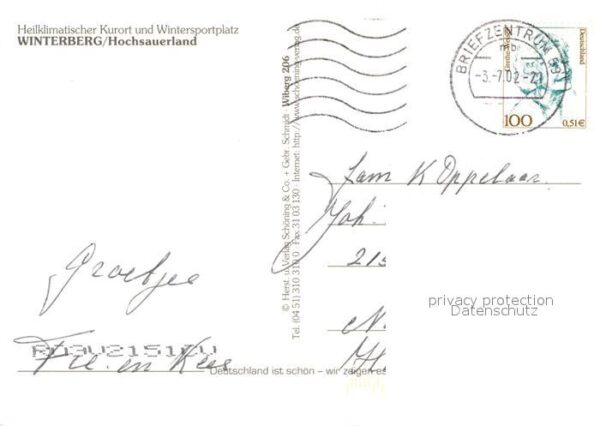 Heilklimatischer Kurort und Wintersportplatz
WINTERBERG/Hochsauerland
Groetjes
Fie en Kees
© Herst. u. Verlag Schöning & Co. + Gebr. Schmidt · Wiberg 206
Tel. (04 51) 310 310 Fax 31 03 130 · Internet: http://www.schoening-verlag.de
Deutschland ist schön – wir zeigen es
BRIEFZENTRUM 59
mb
-3.-7.02-21
Deutschland
100
0,51€
Fam K Oppelaar
Joh
215
N.
privacy protection
Datenschutz